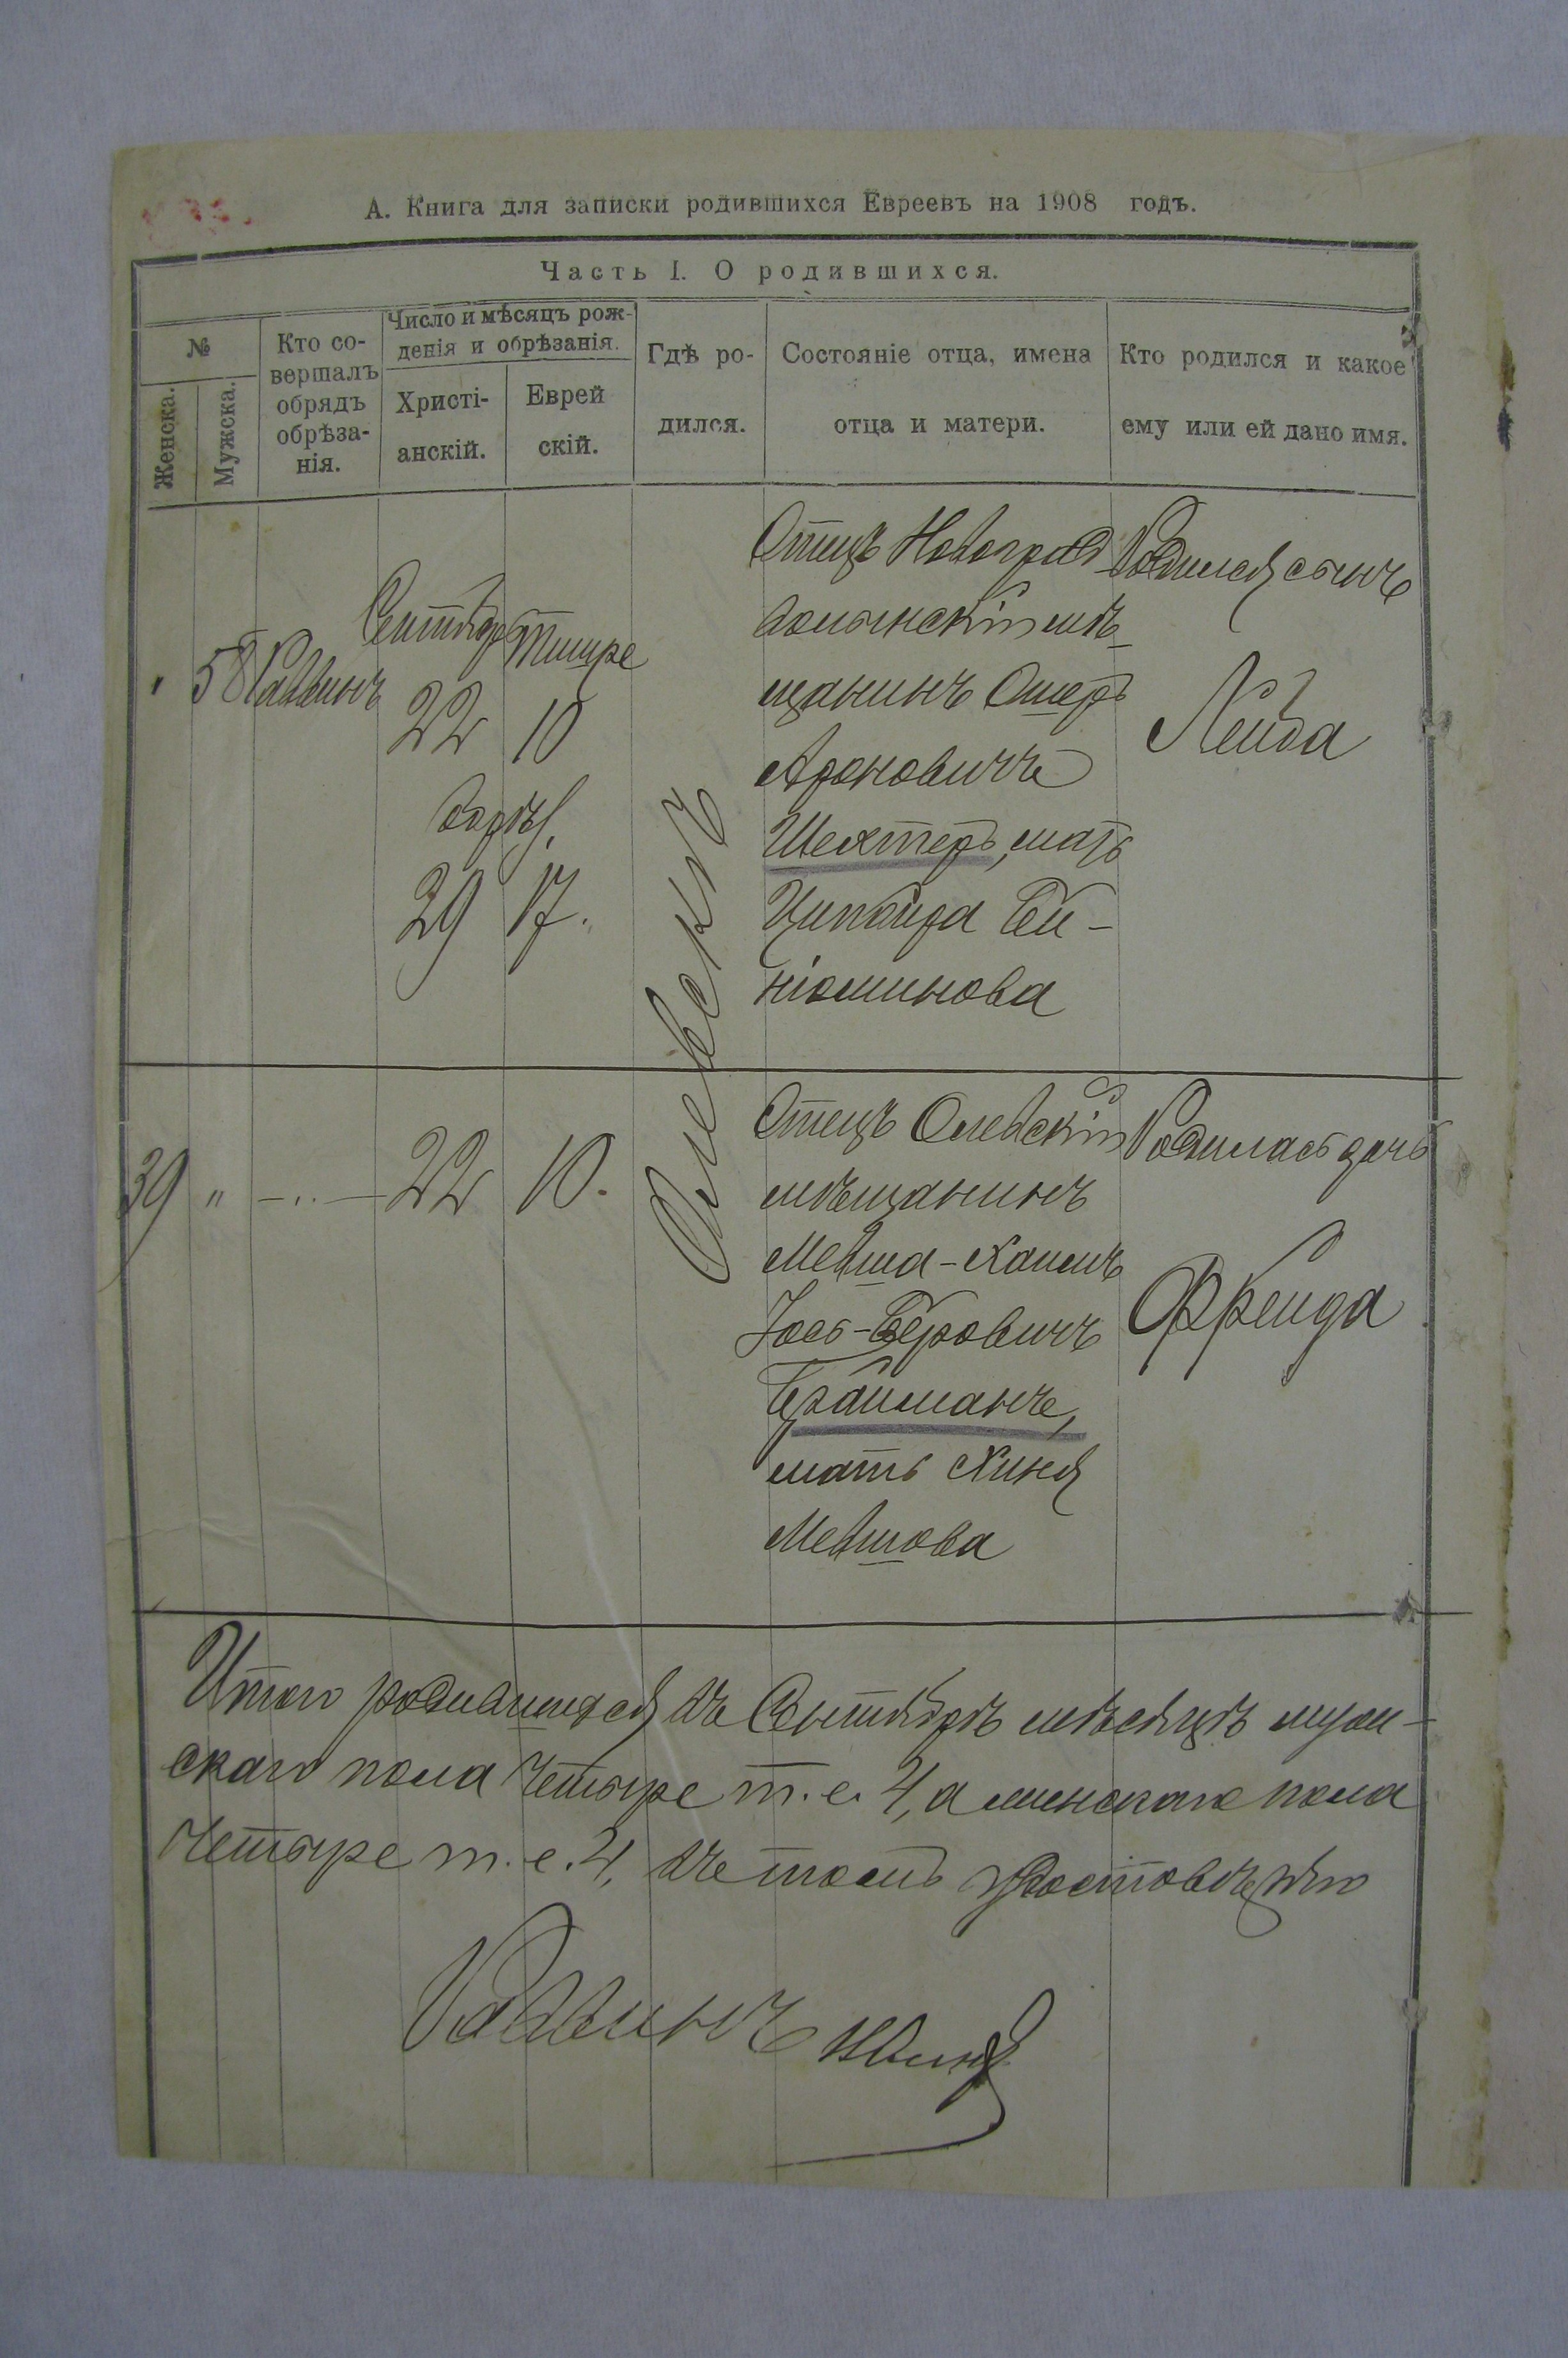 А. Книга для записки родившихся Евреевъ на 1908 годъ.
Часть I. О родившихся.
№
Женска.
Мужска.
Кто со-
вершалъ
обрядъ
обрѣза-
нія.
Число и мѣсяцъ рож-
денія и обрѣзанія.
Христі-
анскій.
Еврей
скій.
Гдѣ ро-
дился.
Состояніе отца, имена
отца и матери.
Кто родился и какое
ему или ей дано имя.
" 58 Раввинъ
Сентябр Тишре
22 10
29 17.
Олевскъ
Отецъ Новоград
волынскій мѣ-
щанинъ Ошеръ
Ароновичъ
Шехтеръ, мать
Ципойра Бей-
ніоминова
Родился сынъ
Лейба
39 " — " — 22 10.
Отецъ Олевскій
мѣщанинъ
Мевша-Хаимъ
Іось-Беровичъ
Брайманъ,
мать Хиня
Мевшова
Родилась дочь
Фрейда
Итого родившихся въ Сентябрѣ мѣсяцѣ муж-
скаго пола четыре т.е. 4, а женскаго пола
четыре т.е. 4, въ томъ удостовѣряю
Раввинъ